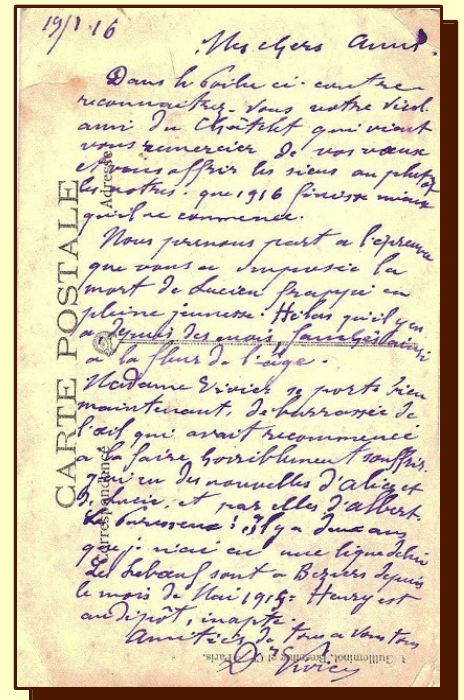 19/1. 16
Mes chers Amis.
Dans le Poilu ci-contre
reconnaitrez-vous votre vieil
ami du Châtelet qui vient
vous remercier de vos vœux
et vous offrir les siens ou plutôt
les notres. que 1916 finisse mieux
qu'il ne commence.
Nous prenons part a l'épreuve
que vous a imposée la
mort de Lucien frappé en
pleine jeunesse. Hélas qu'il y en
a depuis des mois, fauchés
à la fleur de l'âge.
Madame Vivier se porte bien
maintenant, debarrassée de
l'œil qui avait recommencé
a la faire horriblement souffrir.
J'ai eu des nouvelles d'alice et
de Lucie, et par elles d'albert.
Le Paresseux! Il y a deux ans
que je n'ai eu une ligne de lui
Les Lebœuf sont a Beziers depuis
le mois de Mai 1915. Henry est
au dépôt, inapte.
Amitiés de tous a vous tous
Dr Vivier
CARTE POSTALE
Correspondance
Adresse
Guilleminot, Paris.